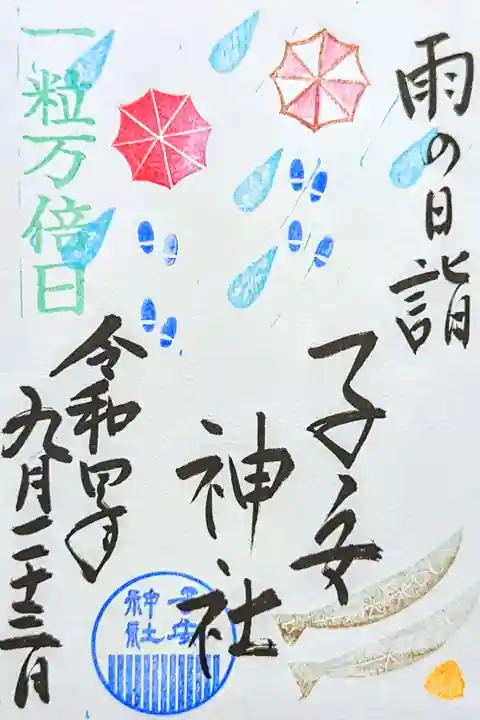 雨の日詣
子安
神社
一粒万倍日
令和四年
九月二十三日